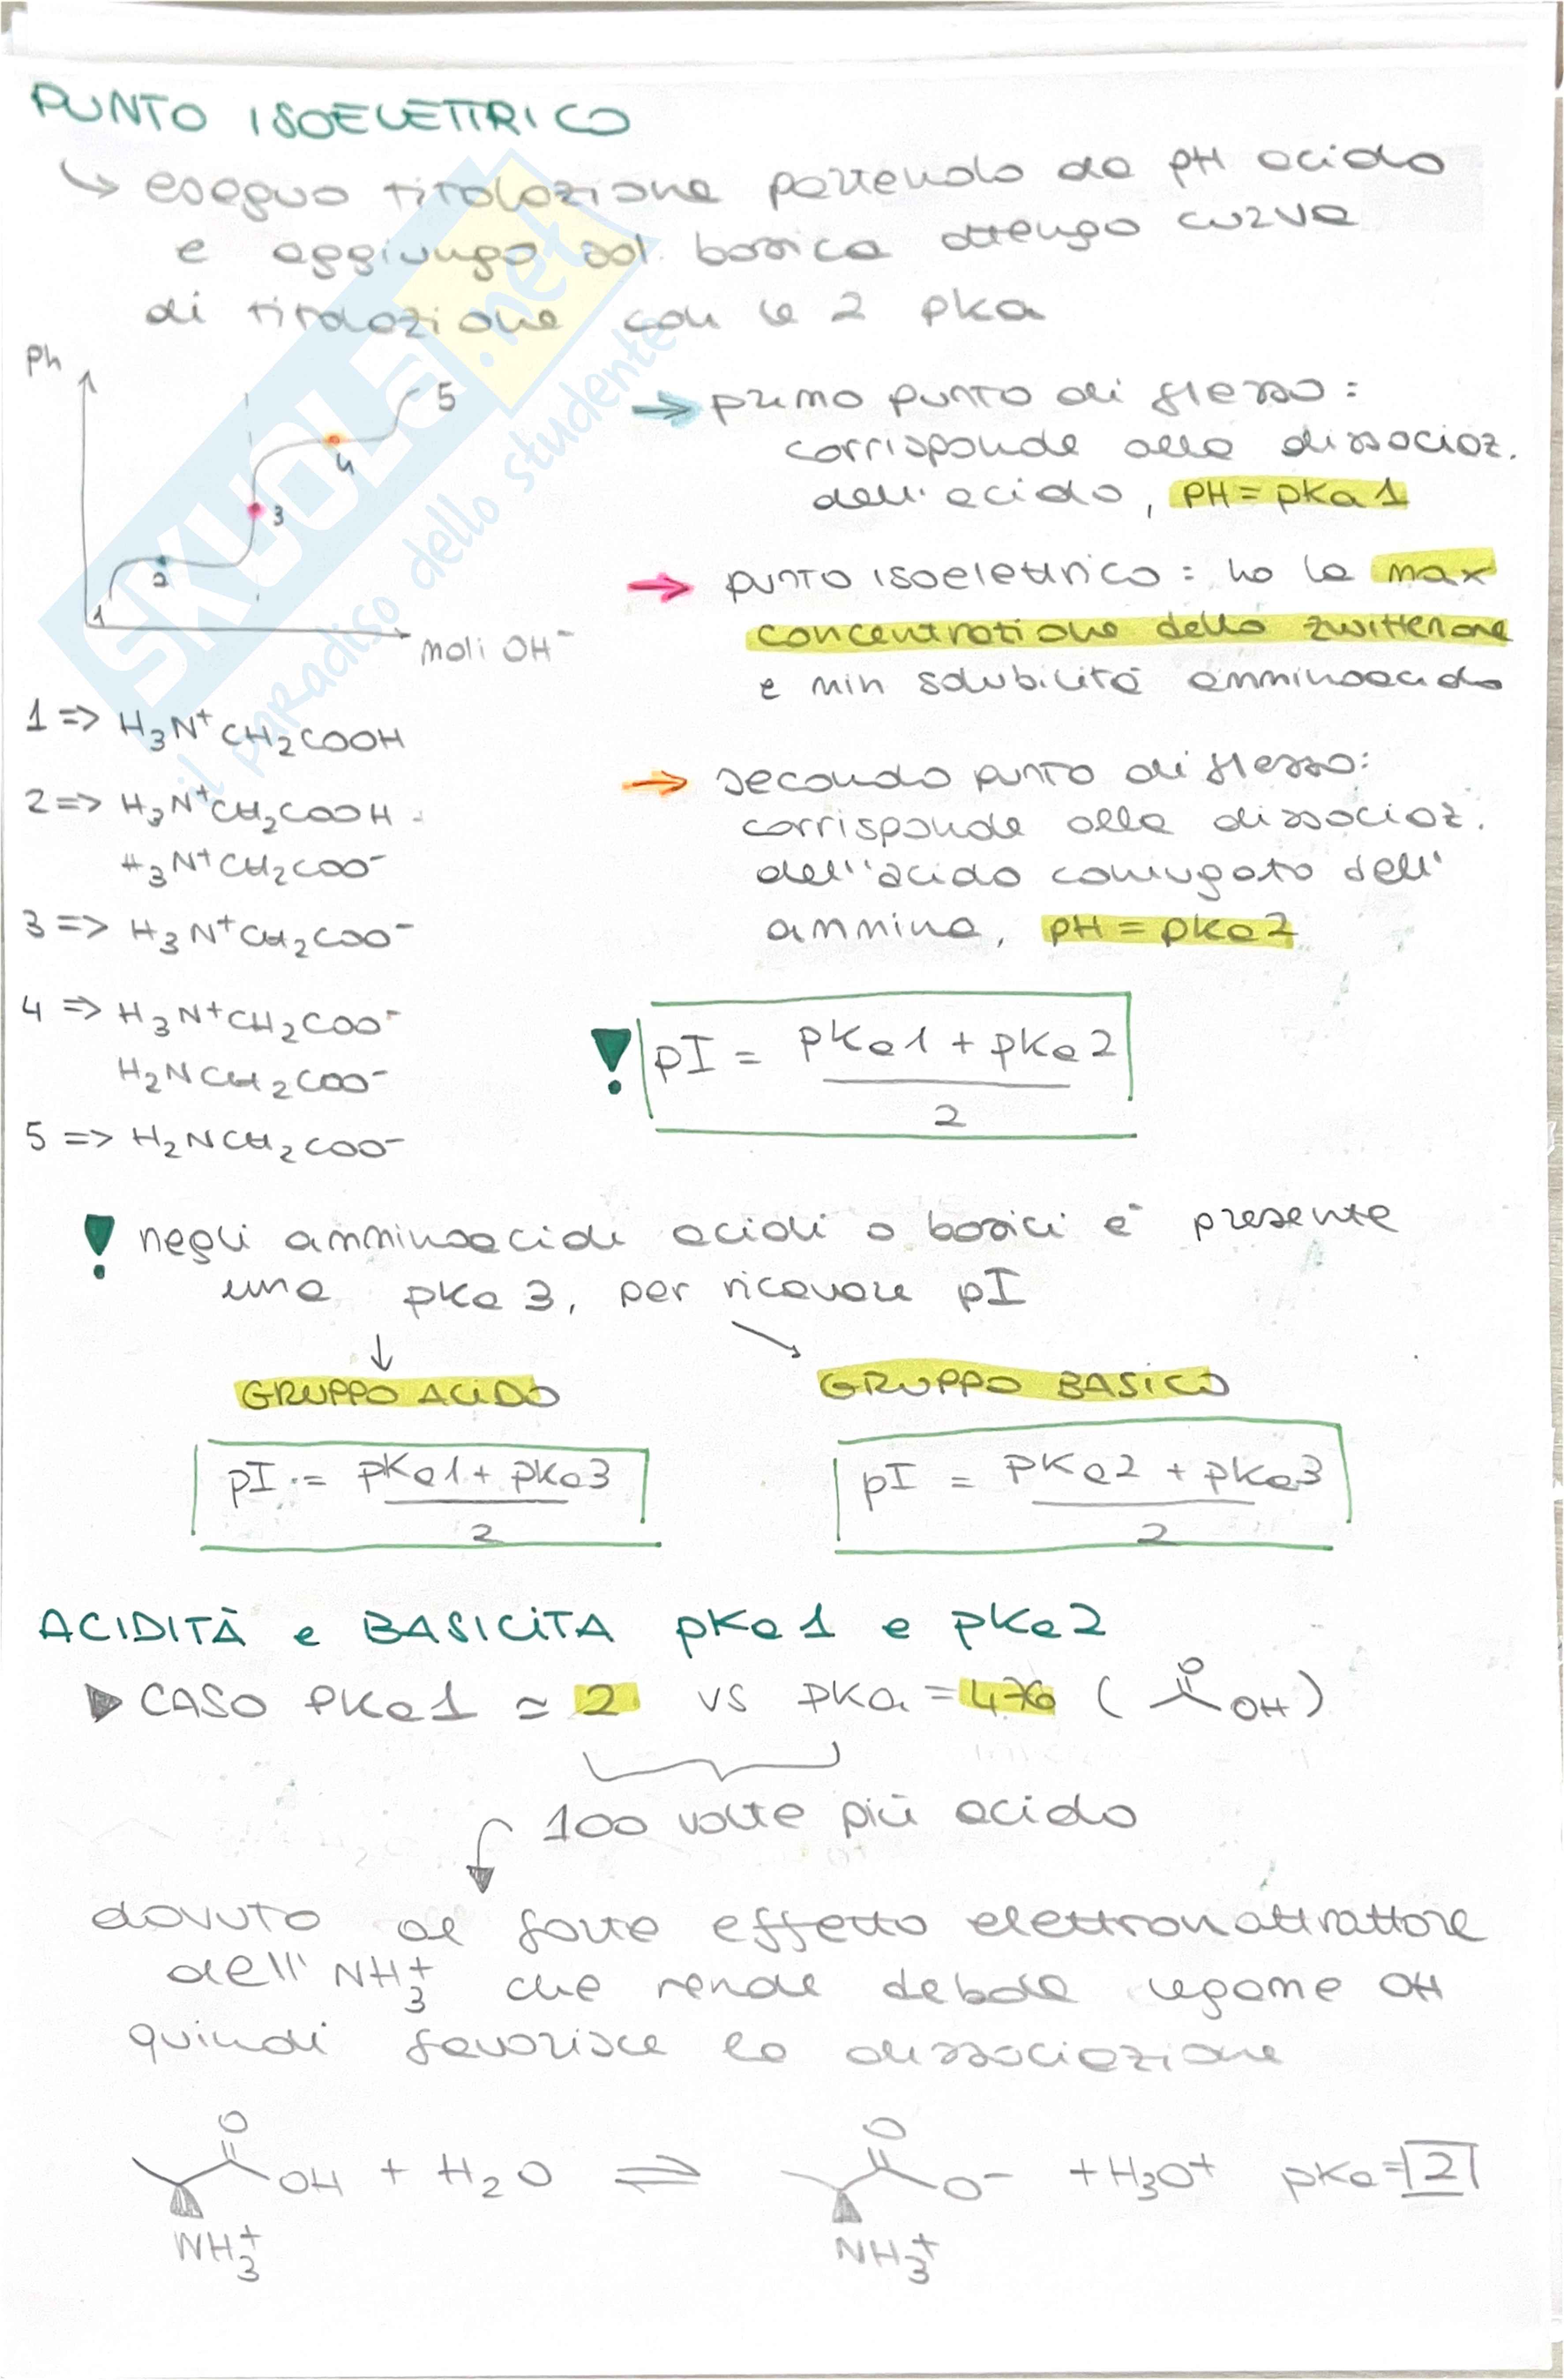 PUNTO ISOELETTRICO
↳ eseguo titolazione partendo da pH acido
e aggiungo sol. basica ottengo curva
di titolazione con le 2 pka
Ph
5
4
3
2
1
moli OH⁻
→ primo punto di flesso:
corrisponde alla dissociaz.
dell'acido, PH = pKa1
→ punto isoelettrico: ho la max
concentrazione dello zwitterione
e min solubilità amminoacido
→ secondo punto di flesso:
corrisponde alla dissociaz.
dell'acido coniugato dell'
ammina, pH = pKa2
1 => H₃N⁺CH₂COOH
2 => H₃N⁺CH₂COOH
H₃N⁺CH₂COO⁻
3 => H₃N⁺CH₂COO⁻
4 => H₃N⁺CH₂COO⁻
H₂NCH₂COO⁻
5 => H₂NCH₂COO⁻
! pI = pKa1 + pKa2
2
! negli amminoacidi acidi o basici è presente
una pKa 3, per ricavare pI
↓ ↘
GRUPPO ACIDO GRUPPO BASICO
pI = pKa1 + pKa3
2
pI = pKa2 + pKa3
2
ACIDITÀ e BASICITA pKa1 e pKa2
▶ CASO PKa1 ≃ 2 vs pKa = 4,76 ( O OH )
100 volte più acido
dovuto al forte effetto elettronattrattore
dell' NH₃⁺ che rende debole legame OH
quindi favorisce la dissociazione
O OH NH₃⁺ + H₂O ⇌ O O⁻ NH₃⁺ + H₃O⁺ pKa = 2
SKUOLA.net
il paradiso dello studente